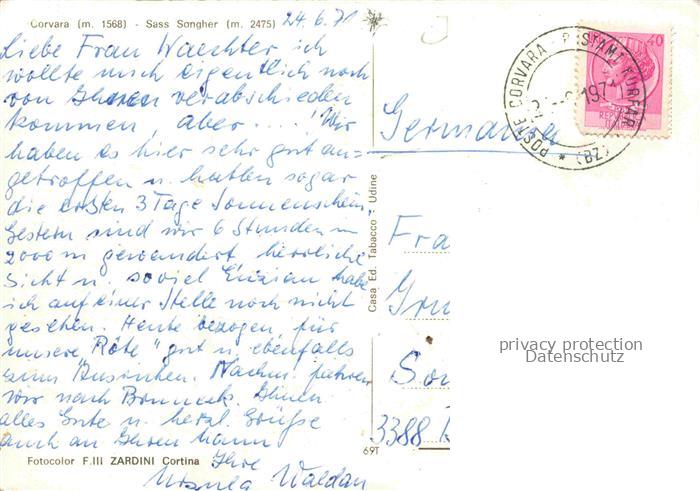 Corvara (m. 1568) - Sass Songher (m. 2475)
24.6.71
Liebe Frau Waechter ich
wollte mich eigentlich noch
von Ihnen verabschieden
kommen, aber ... ! Wir
haben es hier sehr gut an=
getroffen u. hatten sogar
die ersten 3 Tage Sonnenschein.
Gestern sind wir 6 Stunden in
2000 m gewandert, herrliche
Sicht u. soviel Enzian habe
ich auf einer Stelle noch nicht
gesehen. Heute bezogen, für
unsere "Röte" gut u. ebenfalls
zum Ausruhen. Nachm. fahren
wir nach Bruneck. Ihnen
alles Gute u. herzl. Grüße
auch an Ihren Mann
Ihre
Ursula Waldau
Fotocolor F.lli ZARDINI Cortina
69T
Casa Ed. Tabacco - Udine
POSTE CORVARA - POSTAMT KURFAR
1971
* (BZ)
40
Germania
Fra
Gru
So
3388
privacy protection
Datenschutz